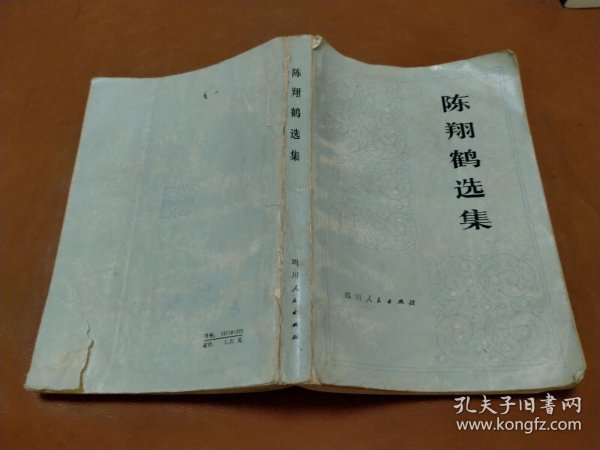 陈翔鹤选集
四川人民出版社
陈翔鹤选集
四川人民出版社
书号：
定价： 元
孔夫子旧书网
www.kongfz.com